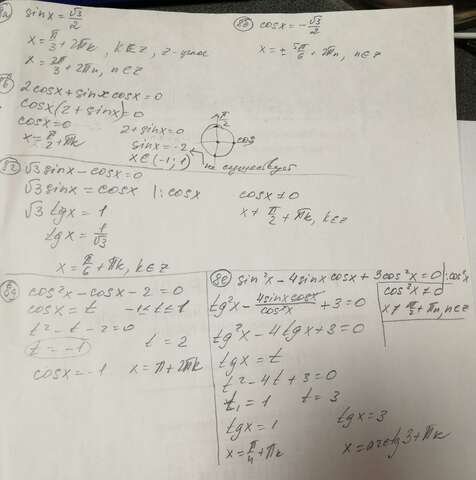 8а) sinx = √3/2
x = π/3 + 2πk, k∈z, z - целое
x = 2π/3 + 2πn, n∈z
8б) cosx = -√3/2
x = ± 5π/6 + 2πn, n∈z
8в) 2cosx + sinxcosx = 0
cosx(2 + sinx) = 0
cosx = 0
x = π/2 + πk
2 + sinx = 0
sinx = -2
x∈(-1; 1)
не существует
π/2
cos
8г) √3 sinx - cosx = 0
√3 sinx = cosx |: cosx
√3 tgx = 1
tgx = 1/√3
x = π/6 + πk, k∈z
cosx ≠ 0
x ≠ π/2 + πk, k∈z
8д) cos²x - cosx - 2 = 0
cosx = t -1≤t≤1
t² - t - 2 = 0
t = -1 t = 2
cosx = -1 x = π + 2πk
8е) sin²x - 4sinxcosx + 3cos²x = 0 |: cos²x
cos²x ≠ 0
x ≠ π/2 + πn, n∈z
tg²x - 4sinxcosx/cos²x + 3 = 0
tg²x - 4tgx + 3 = 0
tgx = t
t² - 4t + 3 = 0
t₁ = 1 t = 3
tgx = 1 tgx = 3
x = π/4 + πk x = arctg3 + πk